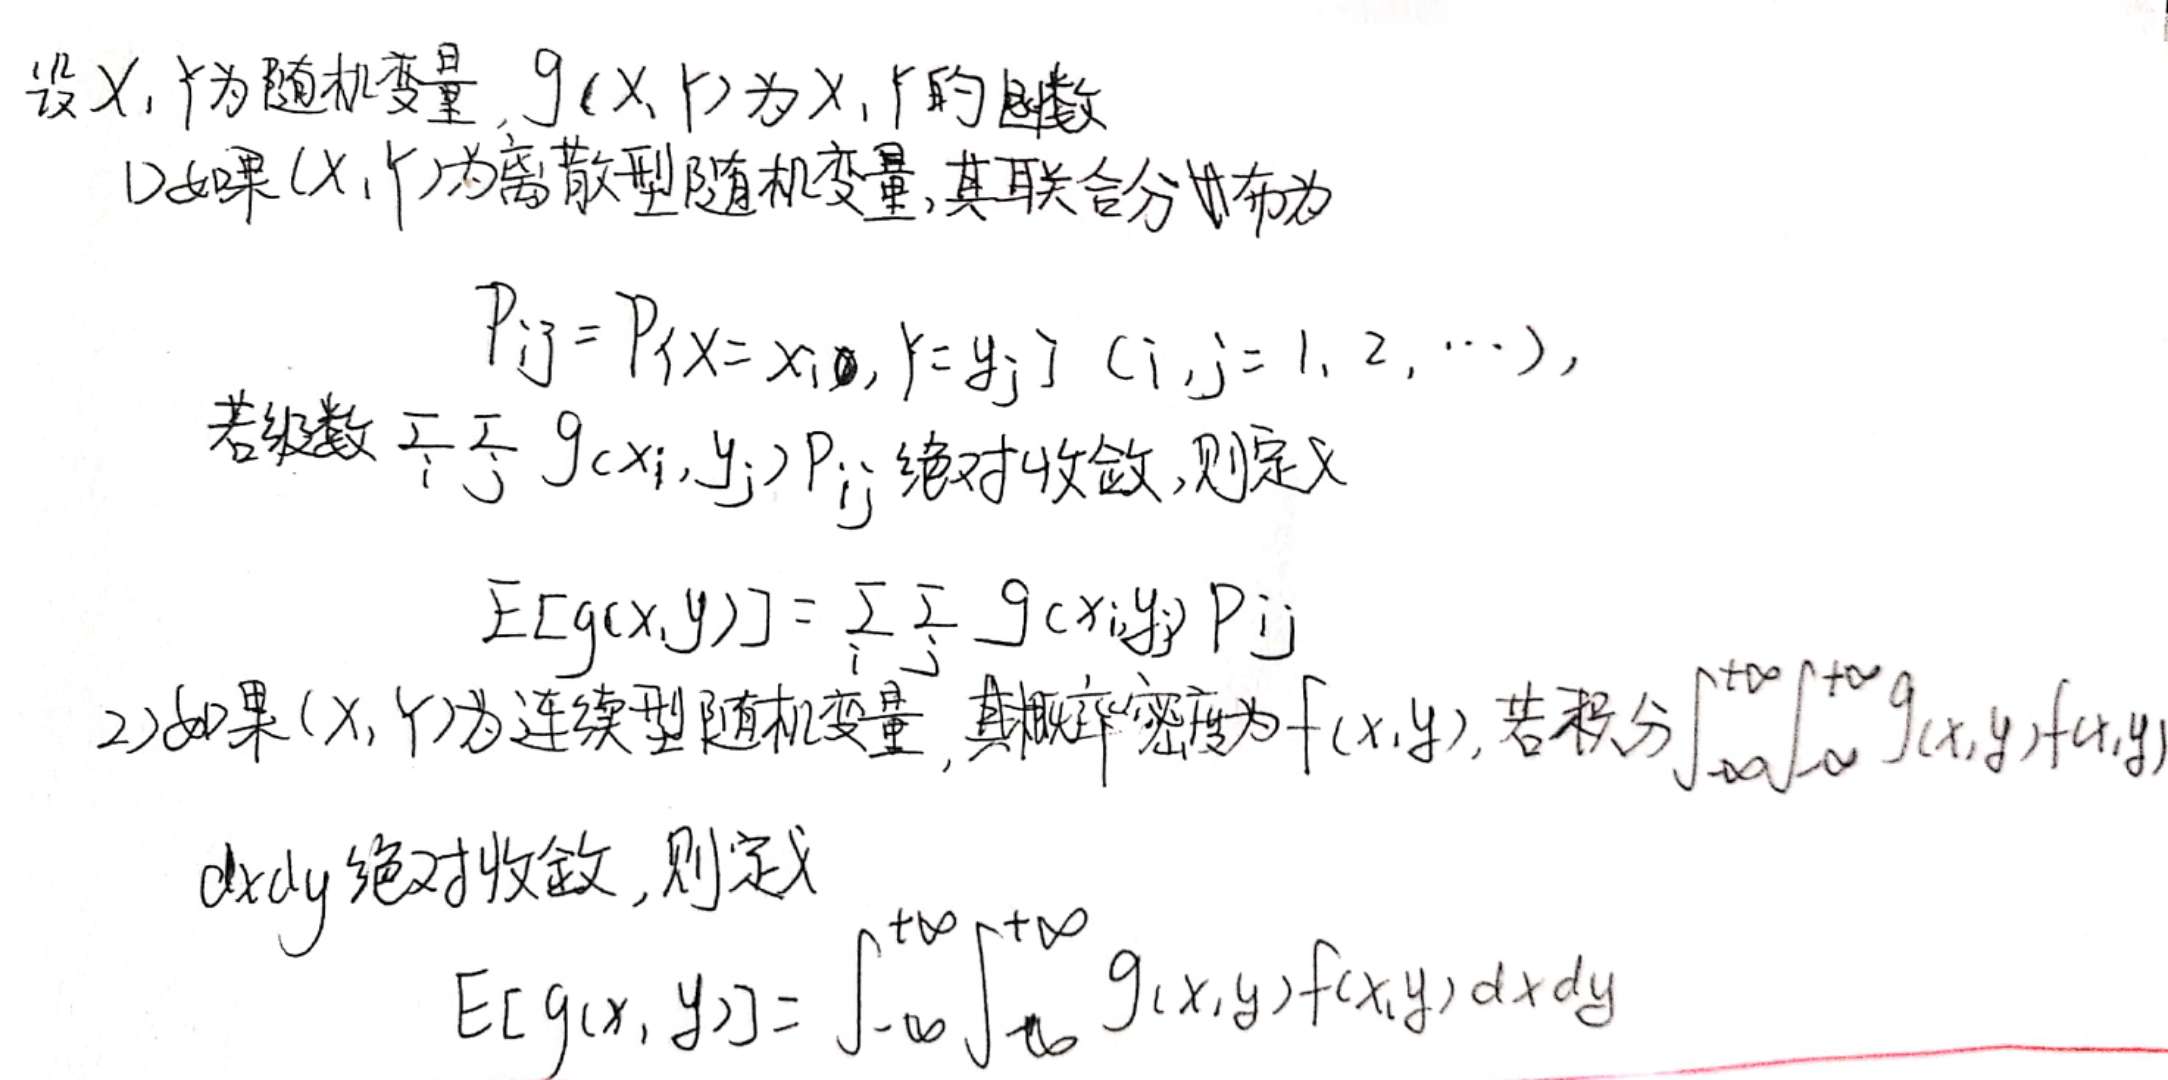 设X,Y为随机变量,g(X,Y)为X,Y的函数
1)如果(X,Y)为离散型随机变量,其联合分布为
P_{ij}=P{X=x_i,Y=y_j} (i,j=1,2,…),
若级数∑_i∑_j g(x_i,y_j)P_{ij}绝对收敛,则定义
E[g(x,y)]=∑_i∑_j g(x_i,y_j)P_{ij}
2)如果(X,Y)为连续型随机变量,其概率密度为f(x,y),若积分∫_{-∞}^{+∞}∫_{-∞}^{+∞}g(x,y)f(x,y)
dxdy绝对收敛,则定义
E[g(x,y)]=∫_{-∞}^{+∞}∫_{-∞}^{+∞}g(x,y)f(x,y)dxdy